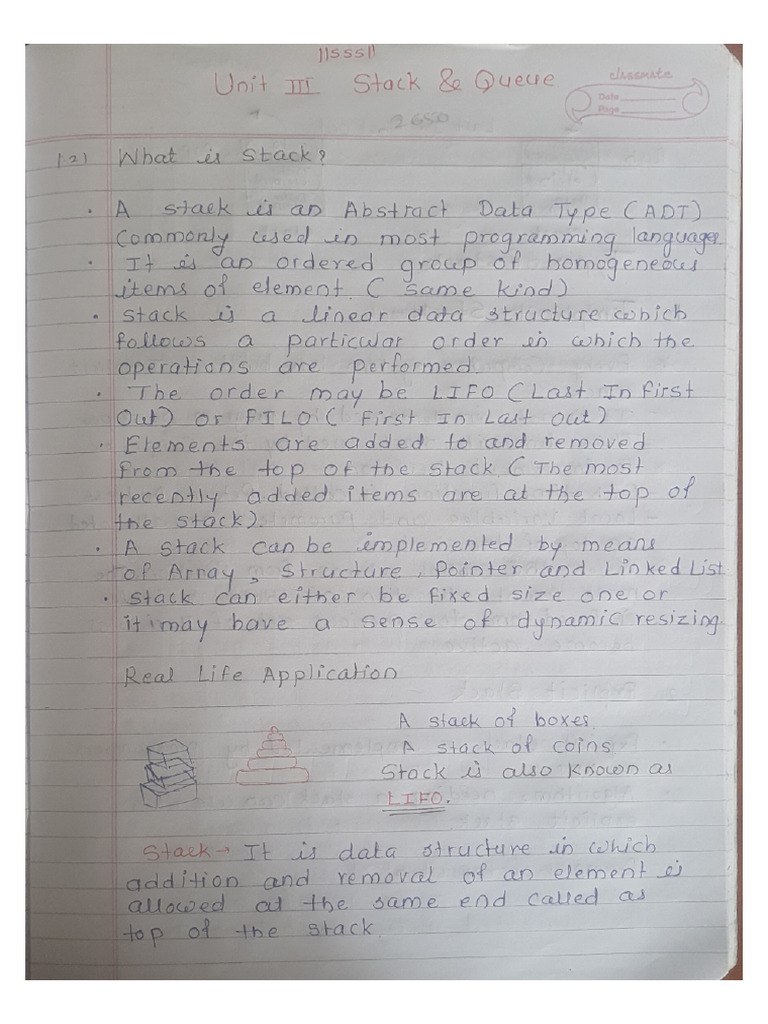 ||SSS||
Unit III Stack & Queue
classmate
Date
Page
1.2) What is Stack?
• A stack is an Abstract Data Type (ADT)
Commonly used in most programming languages
• It is an ordered group of homogeneous
items of element. ( Same kind)
• Stack is a linear data structure which
follows a particular order in which the
operations are performed.
• The order may be LIFO (Last In First
Out) or FILO ( First In Last Out)
• Elements are added to and removed
from the top of the stack ( The most
recently added items are at the top of
the stack).
• A stack can be implemented by means
of Array, Structure, Pointer and Linked List
• Stack can either be fixed size one or
it may have a sense of dynamic resizing.
Real Life Application
A stack of boxes
A stack of coins
Stack is also known as
LIFO.
Stack → It is data structure in which
addition and removal of an element is
allowed at the same end called as
top of the stack.